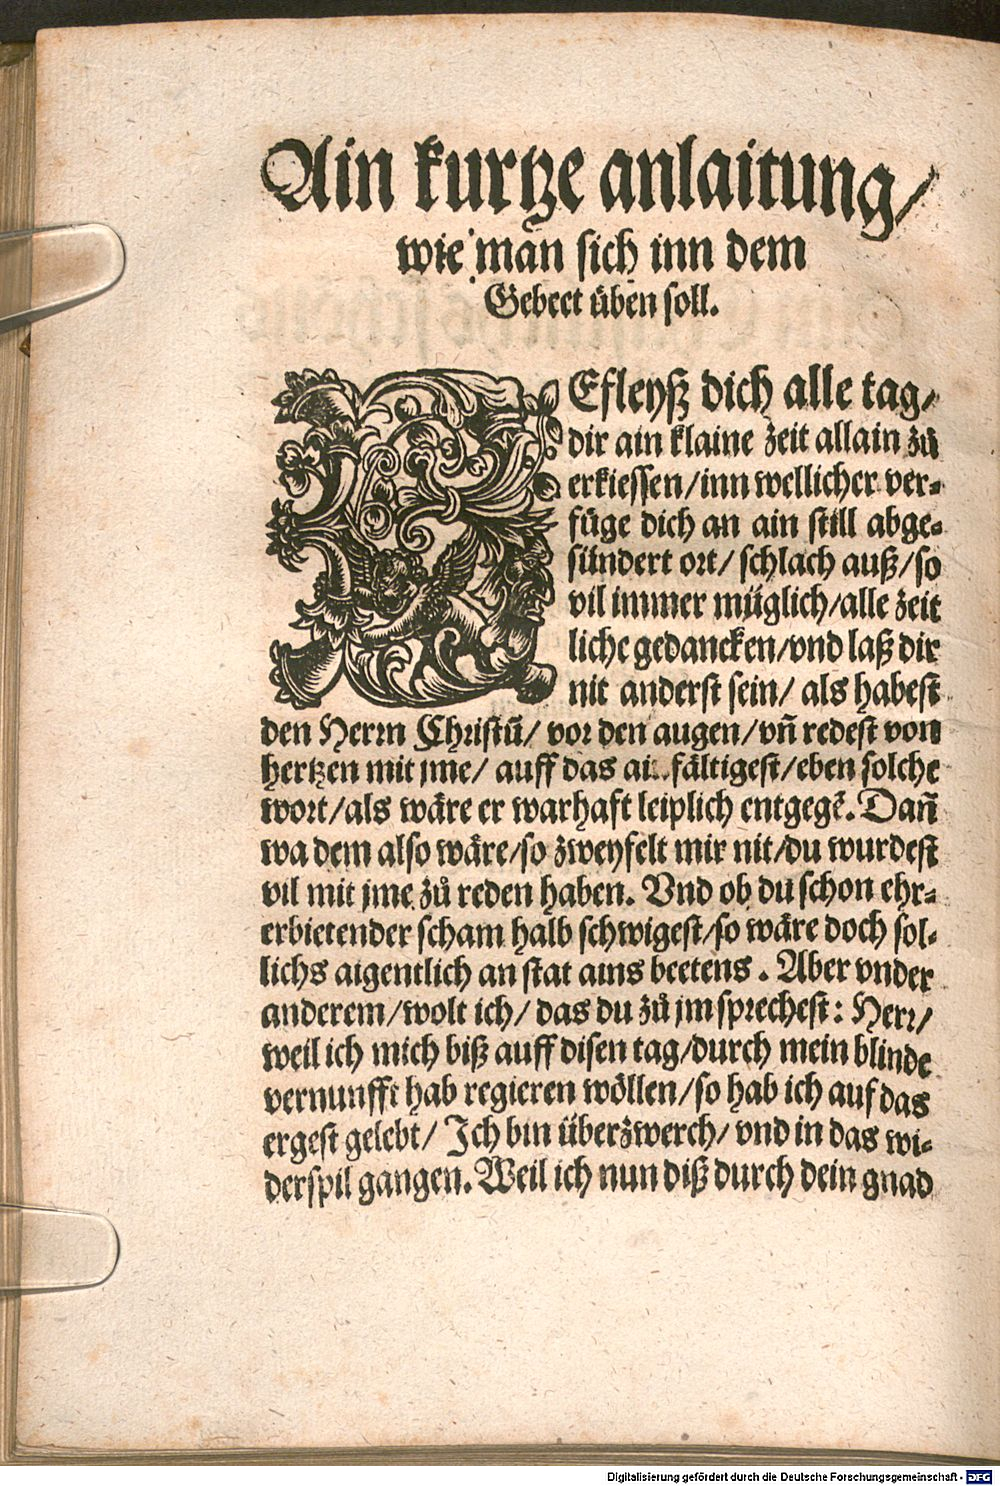 Ain kurtze anlaitung/
wie man sich inn dem
Gebeet üben soll.
BEfleyß dich alle tag/
dir ain klaine zeit allain zů
erkiessen/inn wellicher ver-
füge dich an ain still abge-
sündert ort/ schlach auß/so
vil immer müglich/alle zeit
liche gedancken/vnd laß dir
nit anderst sein/ als habest
den Herrn Christũ/ vor den augen/vñ redest von
hertzen mit jme/ auff das ainfältigest/eben solche
wort/als wäre er warhaft leiplich entgegẽ. Dañ
wa dem also wäre/so zweyfelt mir nit/du wurdest
vil mit jme zů reden haben. Vnd ob du schon ehr-
erbietender scham halb schwigest/so wäre doch sol-
lichs aigentlich an stat ains beetens. Aber vnder
anderem/wolt ich/ das du zů jm sprechest: Herr/
weil ich mich biß auff disen tag/durch mein blinde
vernunfft hab regieren wöllen/so hab ich auf das
ergest gelebt/ Ich bin überzwerch/ vnd in das wi-
derspil gangen. Weil ich nun diß durch dein gnad
Digitalisierung gefördert durch die Deutsche Forschungsgemeinschaft - DFG